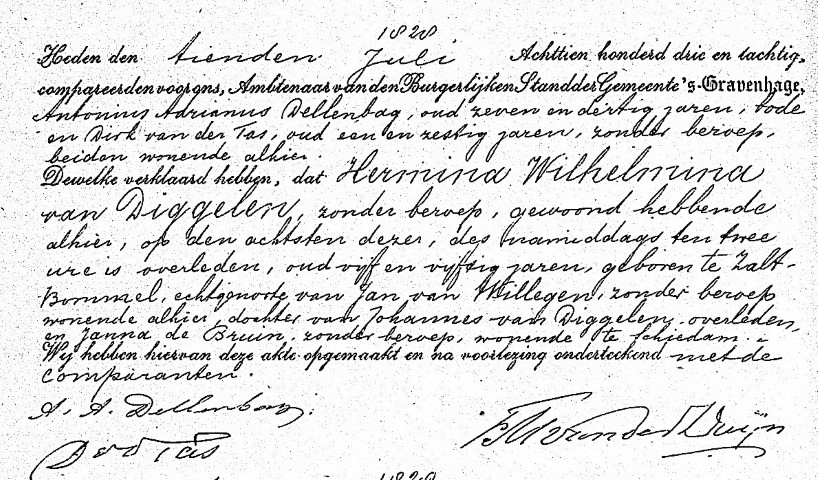 1828
Heden den tienden Juli Achttien honderd drie en tachtig,
compareerden voor ons, Ambtenaar van den Burgerlijken Stand der Gemeente 's-Gravenhage,
Antonius Adrianus Dellenbag, oud zeven en dertig jaren, bode
en Dirk van der Tas, oud een en zestig jaren, zonder beroep,
beiden wonende alhier.
Dewelke verklaard hebben, dat Hermina Wilhelmina
van Diggelen, zonder beroep, gewoond hebbende
alhier, op den achtsten dezer, des namiddags ten twee
ure is overleden, oud vijf en vijftig jaren, geboren te Zalt-
Bommel, echtgenoote van Jan van Willegen, zonder beroep
wonende alhier, dochter van Johannes van Diggelen, overleden,
en Janna de Bruin, zonder beroep, wonende te Schiedam.
Wij hebben hiervan deze akte opgemaakt en na voorlezing onderteekend met de
comparanten.
A. A. Dellenbag.
D v d Tas
van der Duijn
1829